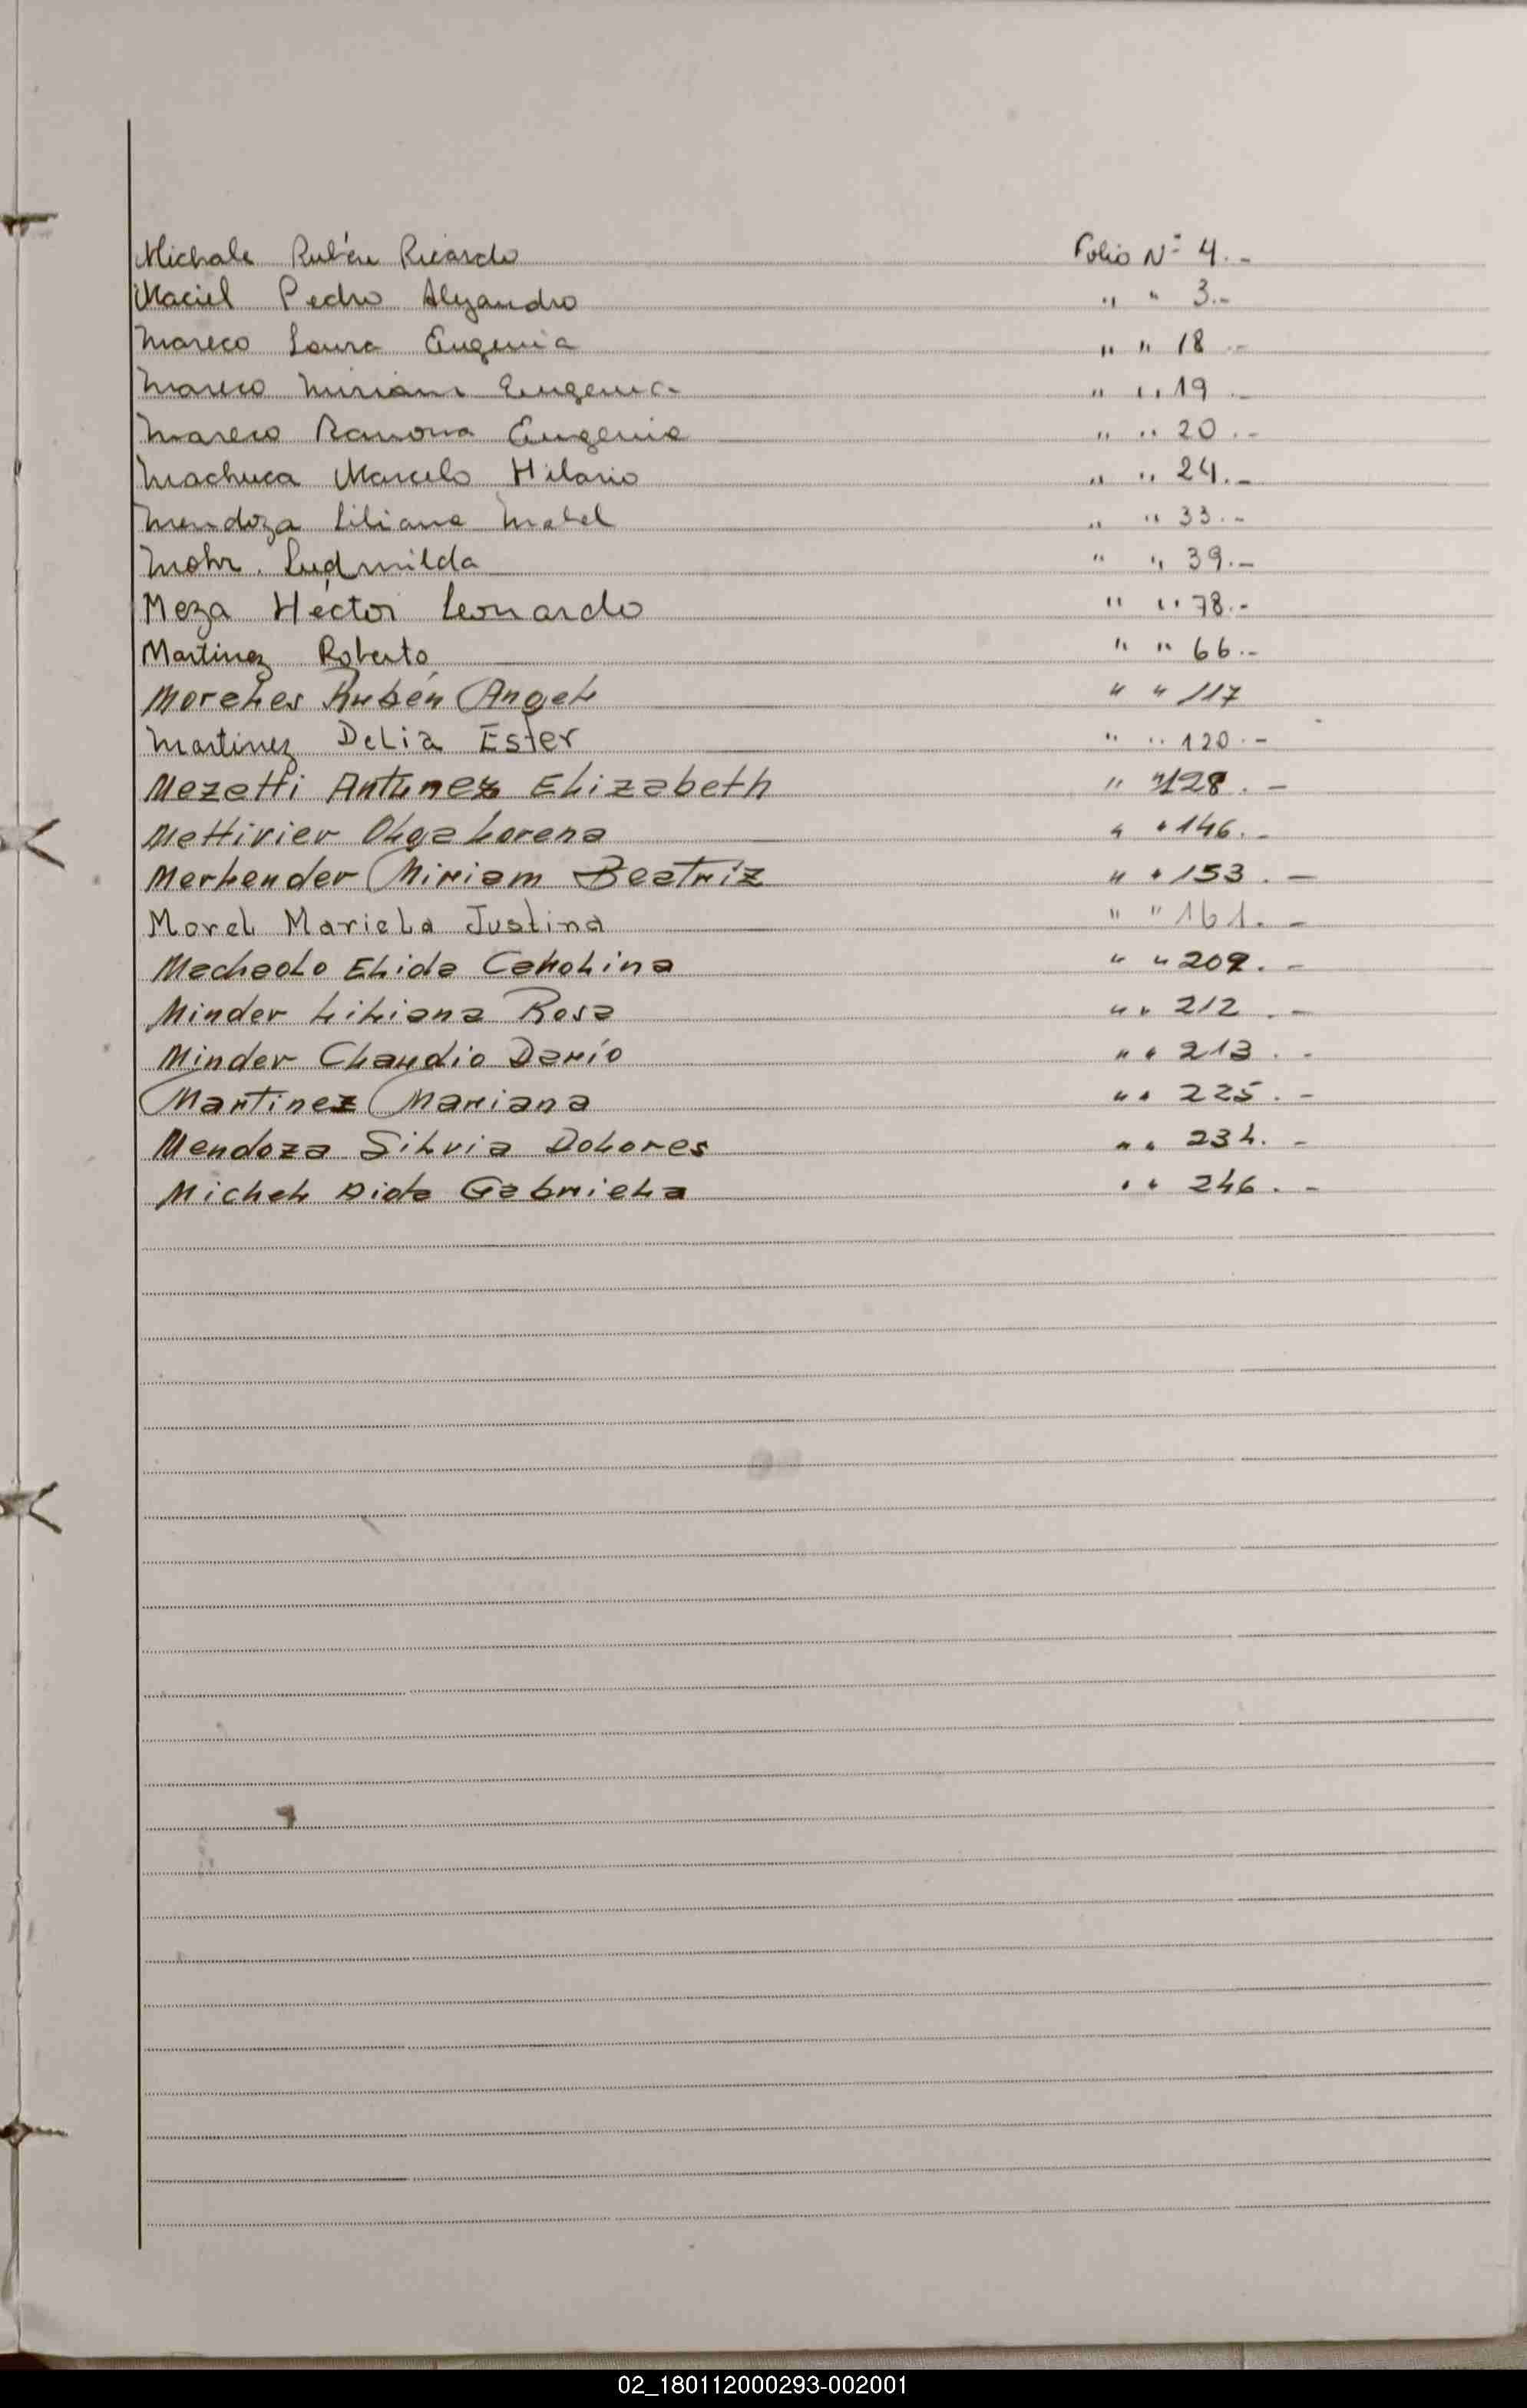 Michale Rubén Ricardo Folio Nº 4.-
Maciel Pedro Alejandro " " 3.-
Mareco Laura Eugenia " " 18.-
Mareco Miriam Eugenia " " 19.-
Mareco Ramona Eugenia " " 20.-
Machuca Marcelo Hilario " " 24.-
Mendoza Liliana Mabel " " 33.-
Mohr. Ludmilda " " 39.-
Meza Héctor Leonardo " " 78.-
Martinez Roberto " " 66.-
Moreles Rubén Angel " " 117
Martinez Delia Ester " " 120.-
Mezetti Antunez Elizabeth " " 128.-
Mettivier Olga Lorena " " 146.-
Merlender Miriam Beatriz " " 153.-
Morel Mariela Justina " " 161.-
Machado Elida Carolina " " 209.-
Minder Liliana Rosa " " 212.-
Minder Claudio Darío " " 213.-
Martinez Mariana " " 225.-
Mendoza Silvia Dolores " " 234.-
Michel Aida Gabriela " " 246.-
02_180112000293-002001